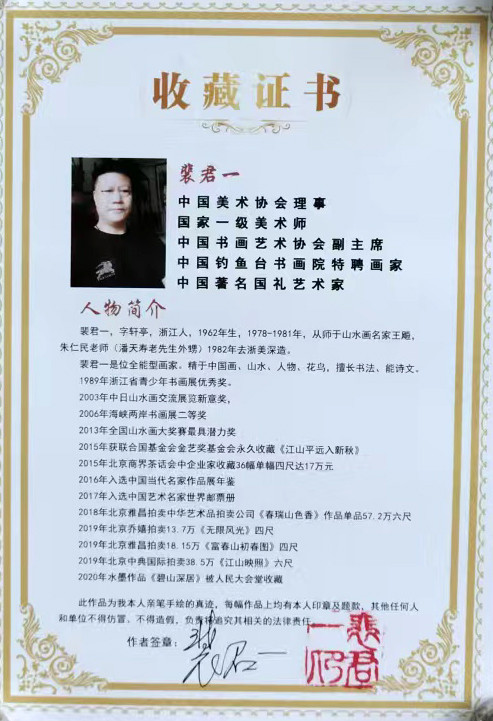 收藏证书
裴君一
中国美术协会理事
国家一级美术师
中国书画艺术协会副主席
中国钓鱼台书画院特聘画家
中国著名国礼艺术家
人物简介
裴君一，字轩亭，浙江人，1962年生，1978-1981年，从师于山水画名家王飚，
朱仁民老师（潘天寿老先生外甥）1982年去浙美深造。
裴君一是位全能型画家。精于中国画、山水、人物、花鸟，擅长书法、能诗文。
1989年浙江省青少年书画展优秀奖。
2003年中日山水画交流展览新意奖，
2006年海峡两岸书画展二等奖
2013年全国山水画大奖赛最具潜力奖
2015年获联合国基金会金艺奖基金会永久收藏《江山平远入新秋》
2015年北京商界茶话会中企业家收藏36幅单幅四尺达17万元
2016年入选中国当代名家作品展年鉴
2017年入选中国艺术名家世界邮票册
2018年北京雅昌拍卖中华艺术品拍卖公司《春瑞山色香》作品单品57.2万六尺
2019年北京乔嬉拍卖13.7万《无限风光》四尺
2019年北京雅昌拍卖18.15万《富春山初春图》四尺
2019年北京中典国际拍卖38.5万《江山映照》六尺
2020年水墨作品《碧山深居》被人民大会堂收藏
此作品为我本人亲笔手绘的真迹，每幅作品上均有本人印章及题款，其他任何人
和单位不得仿置，不得造假，负责将追究其相关的法律责任
作者签章：裴君一
裴君一印